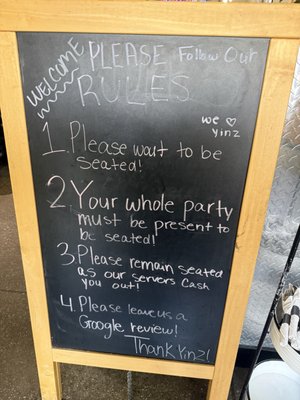 WELCOME PLEASE Follow Our
RULES
we ♡
yinz
1. Please wait to be
seated!
2. Your whole party
must be present to
be seated!
3. Please remain seated
as our servers Cash
you out!
4. Please leave us a
Google review!
Thank Yinz!